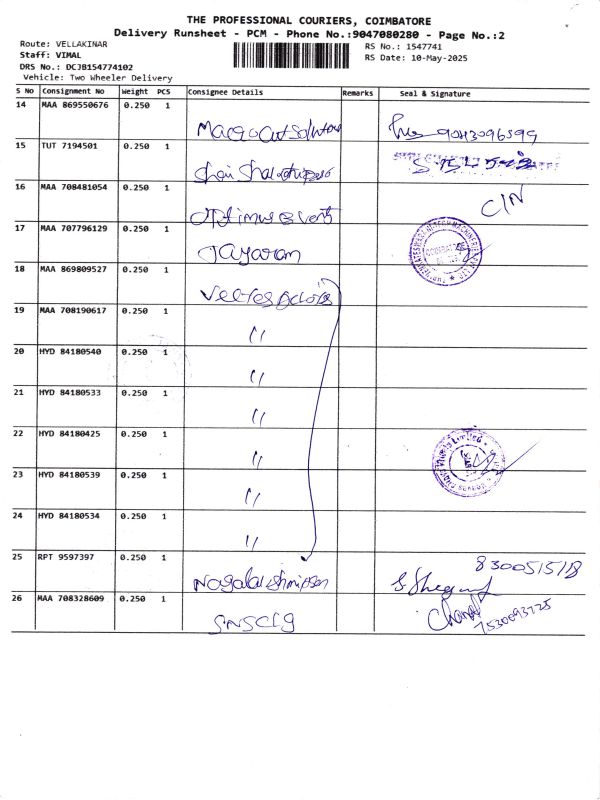 THE PROFESSIONAL COURIERS, COIMBATORE
Delivery Runsheet - PCM - Phone No.:9047080280 - Page No.:2
Route: VELLAKINAR
RS No.: 1547741
Staff: VIMAL
RS Date: 10-May-2025
DRS No.: DCJB154774102
Vehicle: Two Wheeler Delivery
S No Consignment No Weight PCS Consignee Details Remarks Seal & Signature
14 MAA 869550676 0.250 1
9043096599
15 TUT 7194501 0.250 1
16 MAA 708481054 0.250 1
C/N
17 MAA 707796129 0.250 1
Jayaram
18 MAA 869809527 0.250 1
19 MAA 708190617 0.250 1
"
20 HYD 84180540 0.250 1
"
21 HYD 84180533 0.250 1
"
22 HYD 84180425 0.250 1
"
23 HYD 84180539 0.250 1
"
24 HYD 84180534 0.250 1
"
25 RPT 9597397 0.250 1
26 MAA 708328609 0.250 1
SNSCLG
7530093725